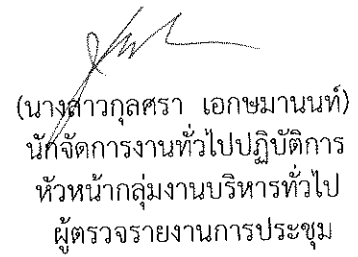 (นางสาวกุลศรา เอกษมานนท์)
นักจัดการงานทั่วไปปฏิบัติการ
หัวหน้ากลุ่มงานบริหารทั่วไป
ผู้ตรวจรายงานการประชุม